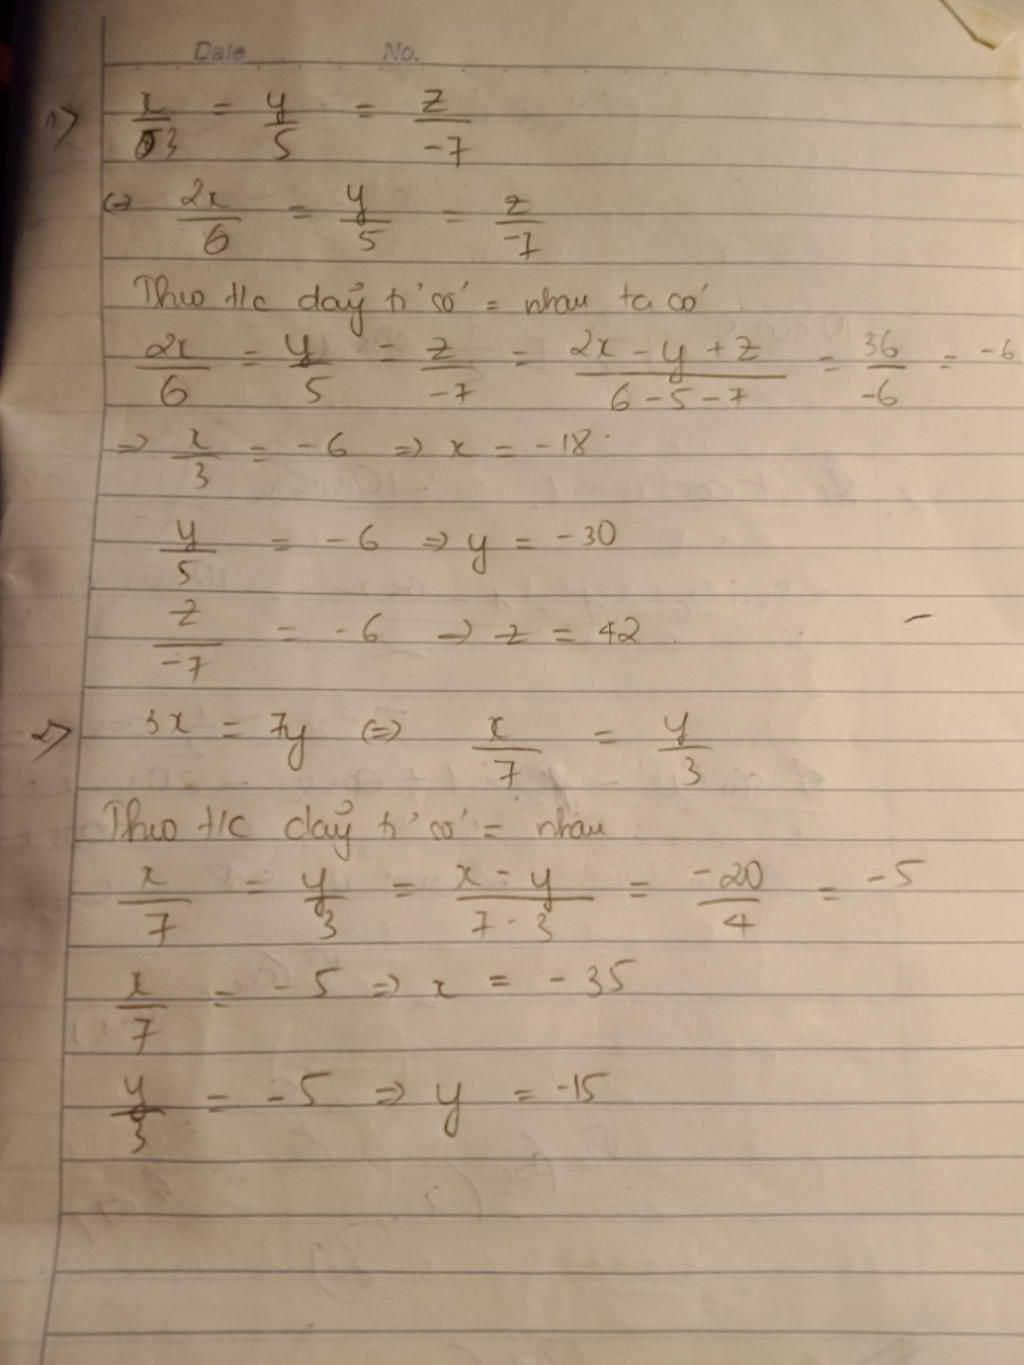 Date No.
1) x/3 = y/5 = z/-7
(=) 2x/6 = y/5 = z/-7
Theo t/c dãy tỉ số = nhau ta có
2x/6 = y/5 = z/-7 = 2x - y + z/6 - 5 - 7 = 36/-6 = -6
=> x/3 = -6 => x = -18
y/5 = -6 => y = -30
z/-7 = -6 => z = 42
2) 3x = 7y (=) x/7 = y/3
Theo t/c dãy tỉ số = nhau
x/7 = y/3 = x - y/7 - 3 = -20/4 = -5
x/7 = -5 => x = -35
y/3 = -5 => y = -15